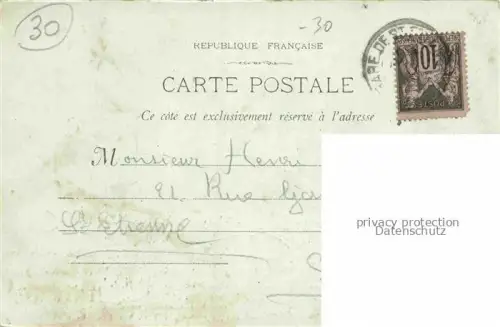 30
-30
RÉPUBLIQUE FRANÇAISE
CARTE POSTALE
Ce côté est exclusivement réservé à l'adresse
GARE DE ST E
10
POSTES
Monsieur Henri
21 Rue
St Etienne
privacy protection
Datenschutz